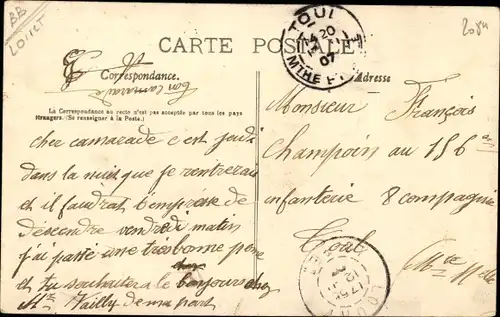 BB
LOIRET
2084
TOUL
20
07
MTHE ET
CARTE POSTALE
Correspondance.
Adresse
ton camarade
La Correspondance au recto n'est pas acceptée par tous les pays
étrangers. (Se renseigner à la Poste.)
cher camarade c est jeudi
dans la nuit que je rentrerai
et il faudrait t'empresse de
descendre vendredi matin
j'ai passé une tres bonne
et tu souhaitera le bonjours chez
Mr Tailly de ma part
Monsieur François
Champoin au 156
infanterie 8 compagnie
Toul
Mthe Melle